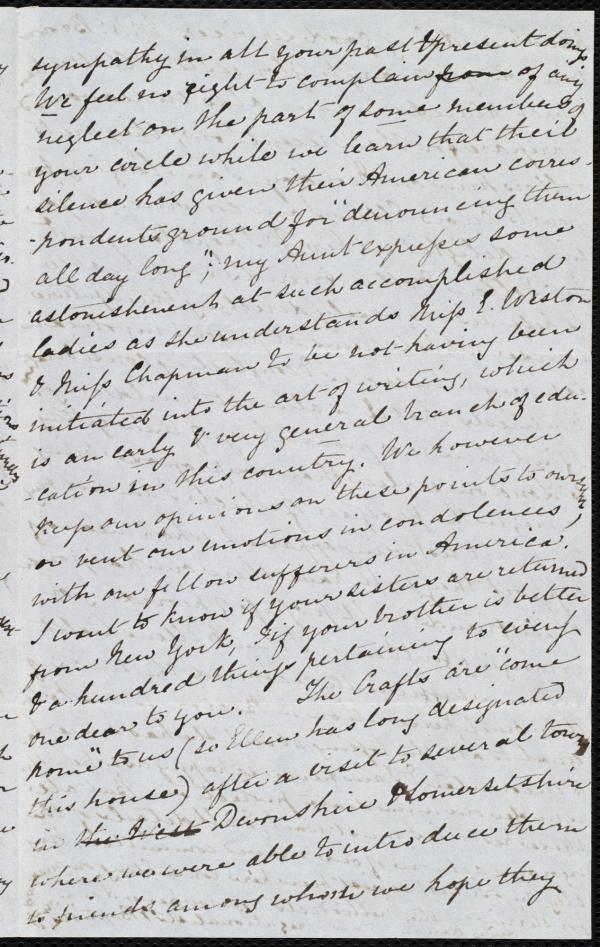 sympathy in all your past & present doings.
We feel no right to complain from of any
neglect on the part of some members of
your circle while we learn that their
silence has given their American corres-
-pondents ground for "denouncing them
all day long"; my Aunt expresses some
astonishment at such accomplished
ladies as she understands Miss E. Weston
& Miss Chapman to be not having been
initiated into the art of writing, which
is an early & very general branch of edu-
-cation in this country. We however
keep our opinions on these points to ourselves
or vent our emotions in condolences,
with our fellow sufferers in America.
I want to know if your sisters are returned
from New York, & if your brother is better
& a hundred things pertaining to every
one dear to you. The Crafts are "come
home" to us (so Ellen has long designated
this house) after a visit to several towns
in the West Devonshire & Somersetshire
where we were able to introduce them
to friends among whom we hope they